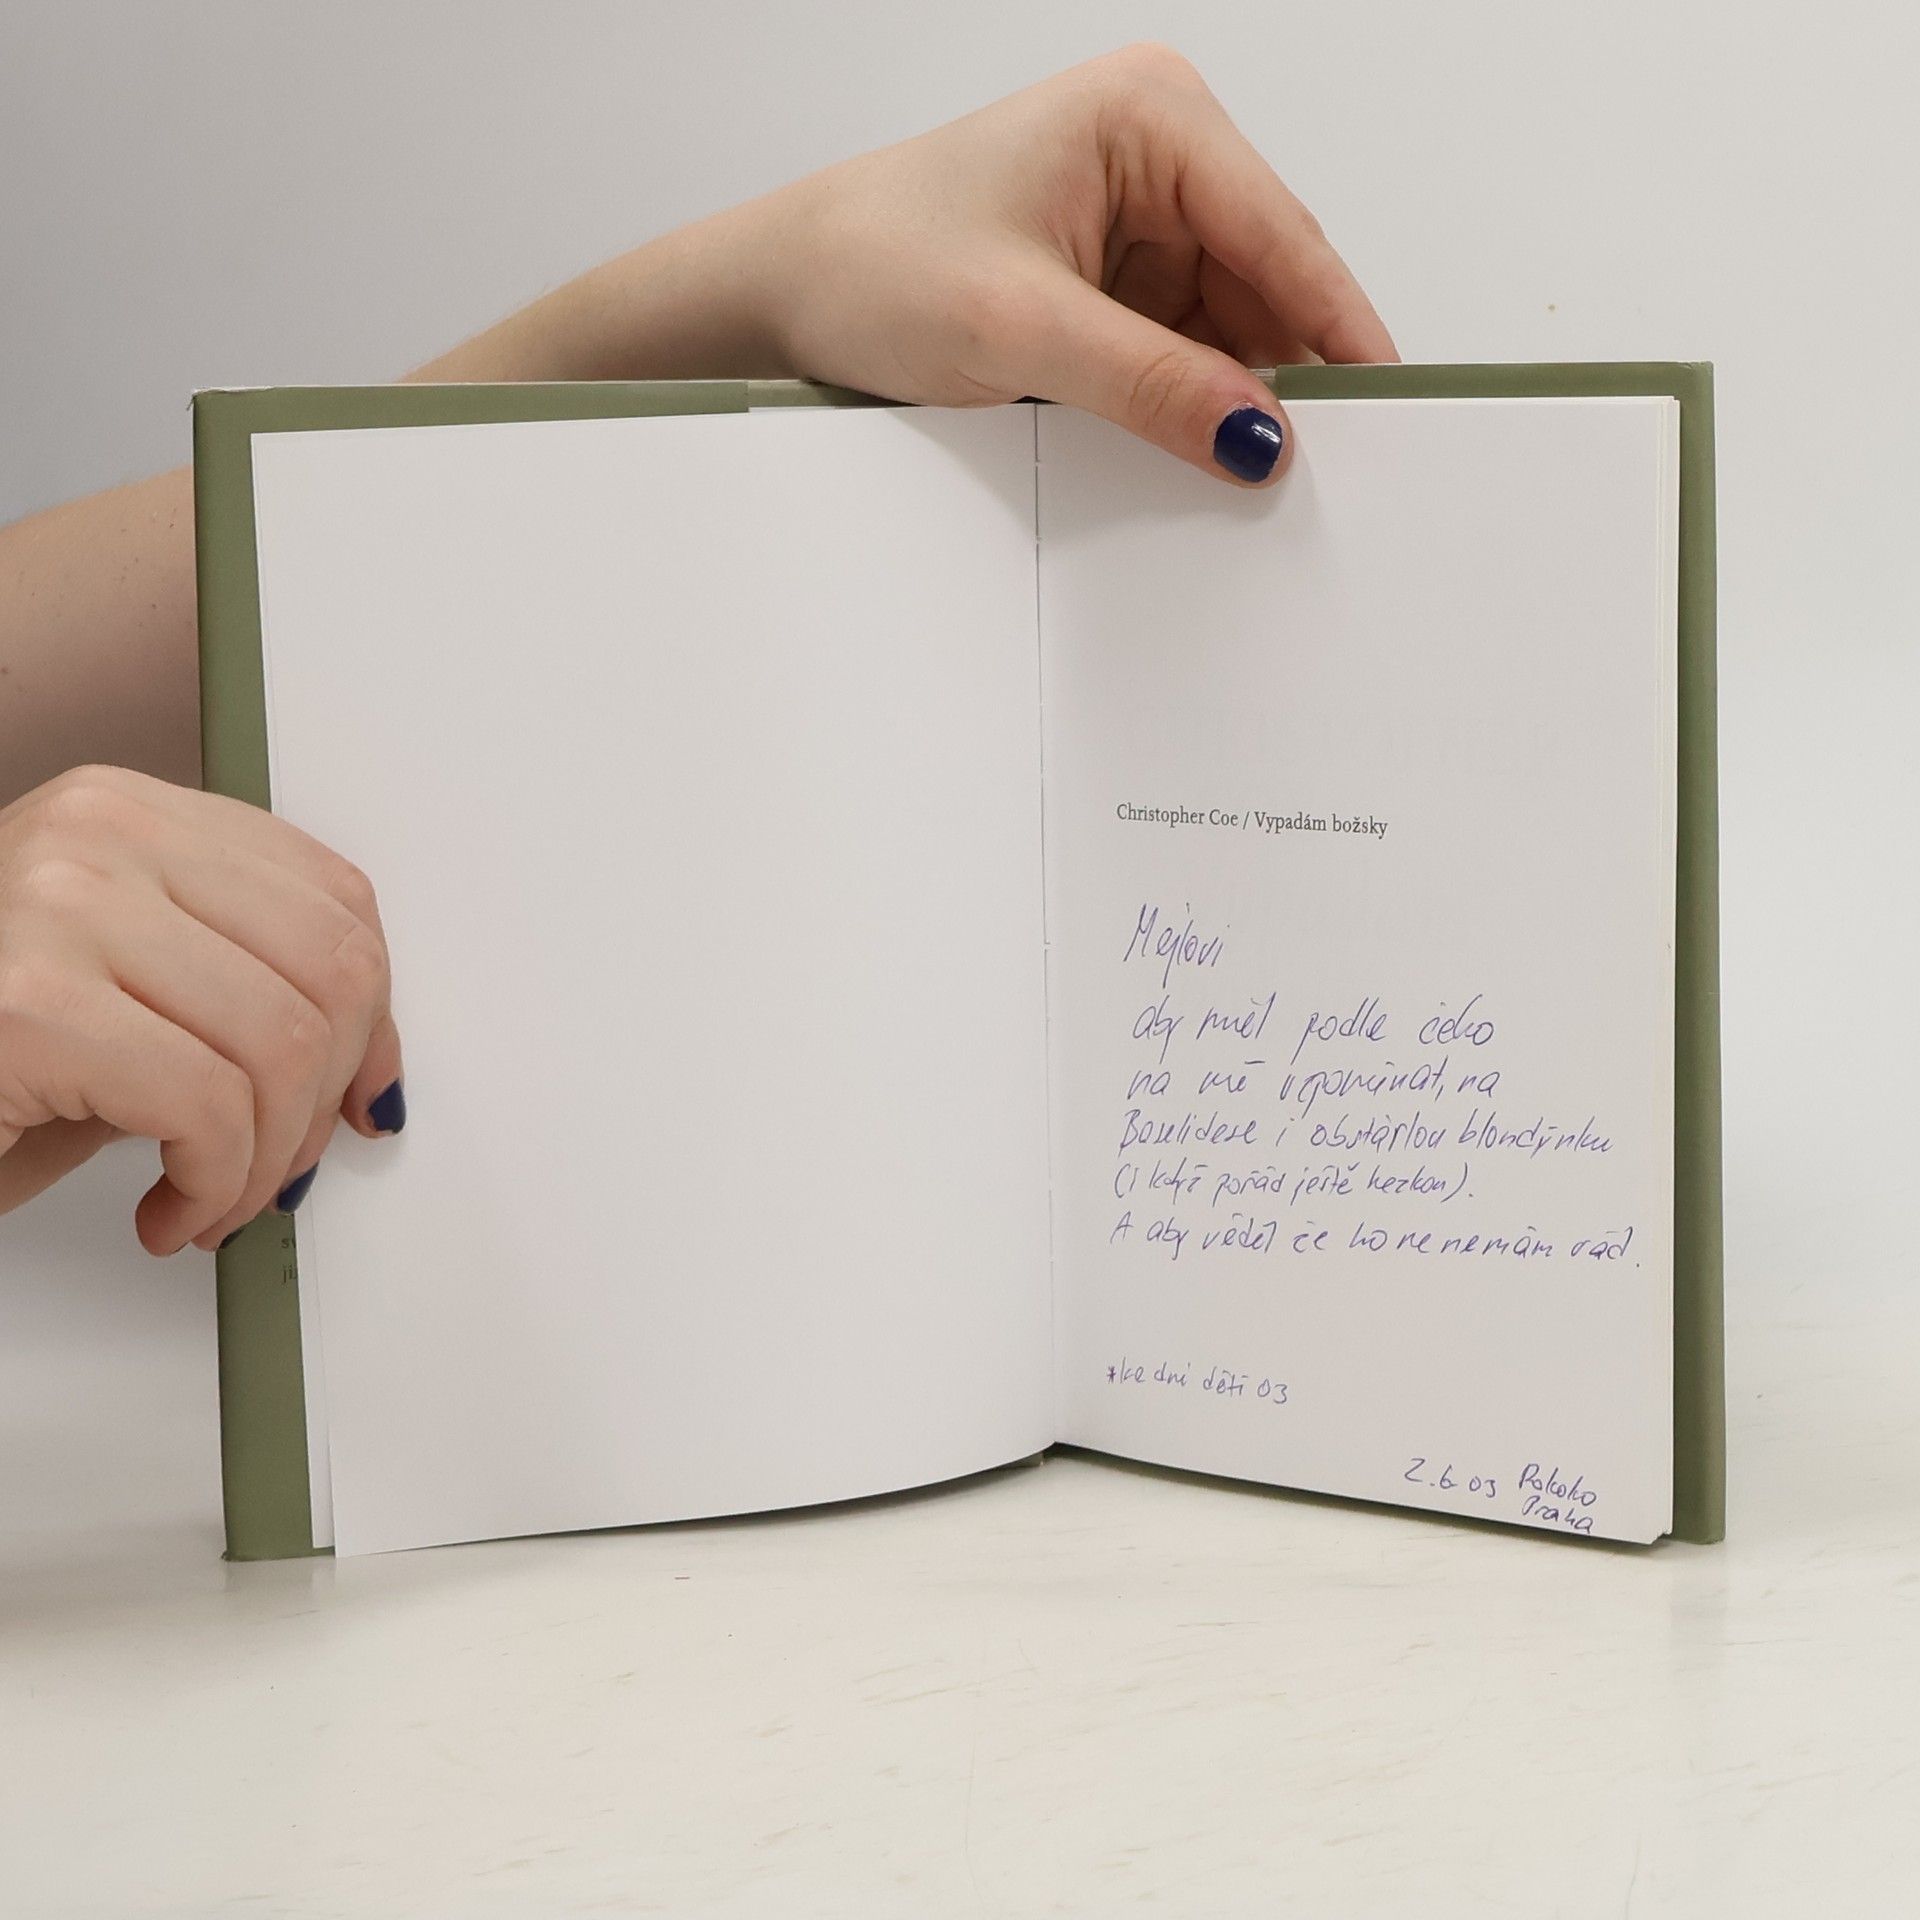 Christopher Coe / Vypadám božsky
Mejlovi
aby měl podle čeho
na mě vzpomínat, na
i obstárlou blondýnku
(i když pořád ještě hezkou).
A aby věděl že ho nenemám rád.
*ke dni dětí 03
2.6 03 Rokoko
Praha